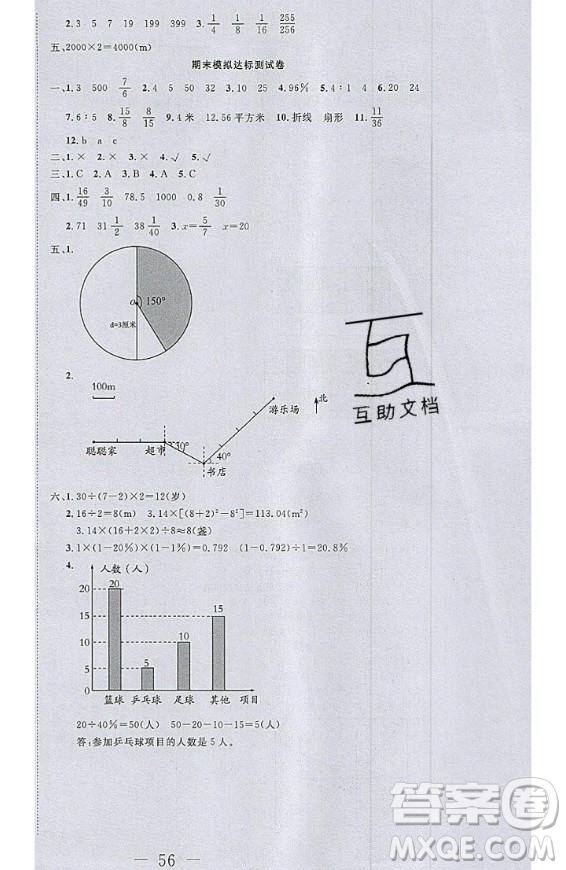 2. 3 5 7 19 199 255 1/4 1/8 1/16 255/256
五、2000×2=4000(m)
期末模拟达标测试卷
一、1. 3 500 7/6 2. 4 5 50 32 3. 10 25 4. 96% 5. 4∶1 4 6. 20 24
7. 6∶5 8. 15/8 8/15 9. 4米 12.56平方米 10. 折线 扇形 11. 11/36
12. b a c
二、1. × 2. × 3. × 4. √ 5. √
三、1. C 2. A 3. B 4. A 5. C
四、1. 16/49 3/10 78.5 1000 0.8 1/30
2. 71 31 1/2 38 1/20 3. x=5/7 x=20
五、1.
O 150°
d=3厘米
2.
100m
游乐场 北
聪聪家 超市 30° 40°
书店
六、1. 30÷(7-2)×2=12(岁)
2. 16÷2=8(m) 3.14×[(8+2)²-8²]=113.04(m²)
3.14×(16+2×2)÷8≈8(盏)
3. 1×(1-20%)×(1-1%)=0.792 (1-0.792)÷1=20.8%
4. 人数(人)
20
20
15
15
10
10
5
5
0
篮球 乒乓球 足球 其他 项目
20÷40%=50(人) 50-20-10-15=5(人)
答:参加乒乓球项目的人数是5人。
56
互助文档
答案圈
MXQE.COM